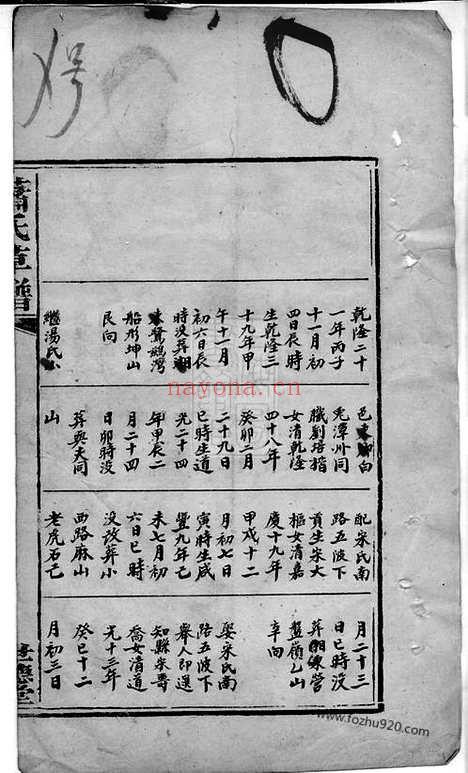 乾隆二十
一年丙子
十一月初
四日辰時
生乾隆三
十九年甲
午十一月
初六日辰
時没葬湖
鵞鷂灣
船形坤山
艮向
繼湯氏公
邑東腳白
禿潭州同
職劉培楷
女清乾隆
四十八年
癸卯二月
二十九日
巳時生道
光二十四
年甲辰二
月二十四
日卯時没
葬與夫同
山
配宋氏南
路五波下
貢生宋大
樞女清嘉
慶十九年
甲戌十二
月初七日
寅時生咸
豐九年己
未七月初
六日巳時
没改葬小
西路麻山
老虎石乙
月二十三
日巳時没
葬湖東營
盤嶺乙山
辛向
娶宋氏南
路五波下
舉人即選
知縣宋壽
喬女清道
光十三年
癸巳十二
月初三日
蕭氏譜
nayona.cn
www.fozhu920.com